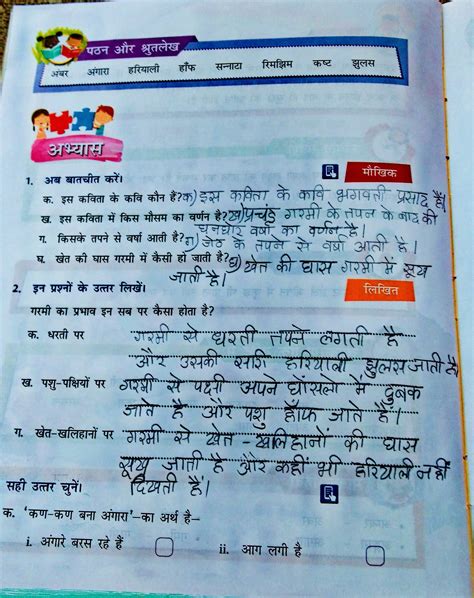 पठन और श्रुतलेख
अंबर अंगारा हरियाली हाँफ सन्नाटा रिमझिम कष्ट झुलस
अभ्यास
मौखिक
1. अब बातचीत करें।
क. इस कविता के कवि कौन है? क) इस कविता के कवि भगवती प्रसाद हैं।
ख. इस कविता में किस मौसम का वर्णन है? ख) प्रचंड गरमी के तपन के बाद की
घनघोर वर्षा का वर्णन है।
ग. किसके तपने से वर्षा आती है? ग) जेठ के तपन से वर्षा आती है।
घ. खेत की घास गरमी में कैसी हो जाती है? घ) खेत की घास गरमी में सूख
जाती है।
2. इन प्रश्नों के उत्तर लिखें।
लिखित
गरमी का प्रभाव इन सब पर कैसा होता है?
क. धरती पर गरमी से धरती तपने लगती है
और उसकी सारी हरियाली झुलस जाती है।
ख. पशु-पक्षियों पर गरमी से पक्षी अपने घोंसलों में दुबक
जाते है और पशु हाँफ जाते है।
ग. खेत-खलिहानों पर गरमी से खेत-खलिहानों की घास
सूख जाती है और कहीं भी हरियाली नहीं
दिखती है।
सही उत्तर चुनें।
क. 'कण-कण बना अंगारा'-का अर्थ है–
i. अंगारे बरस रहे हैं ii. आग लगी है